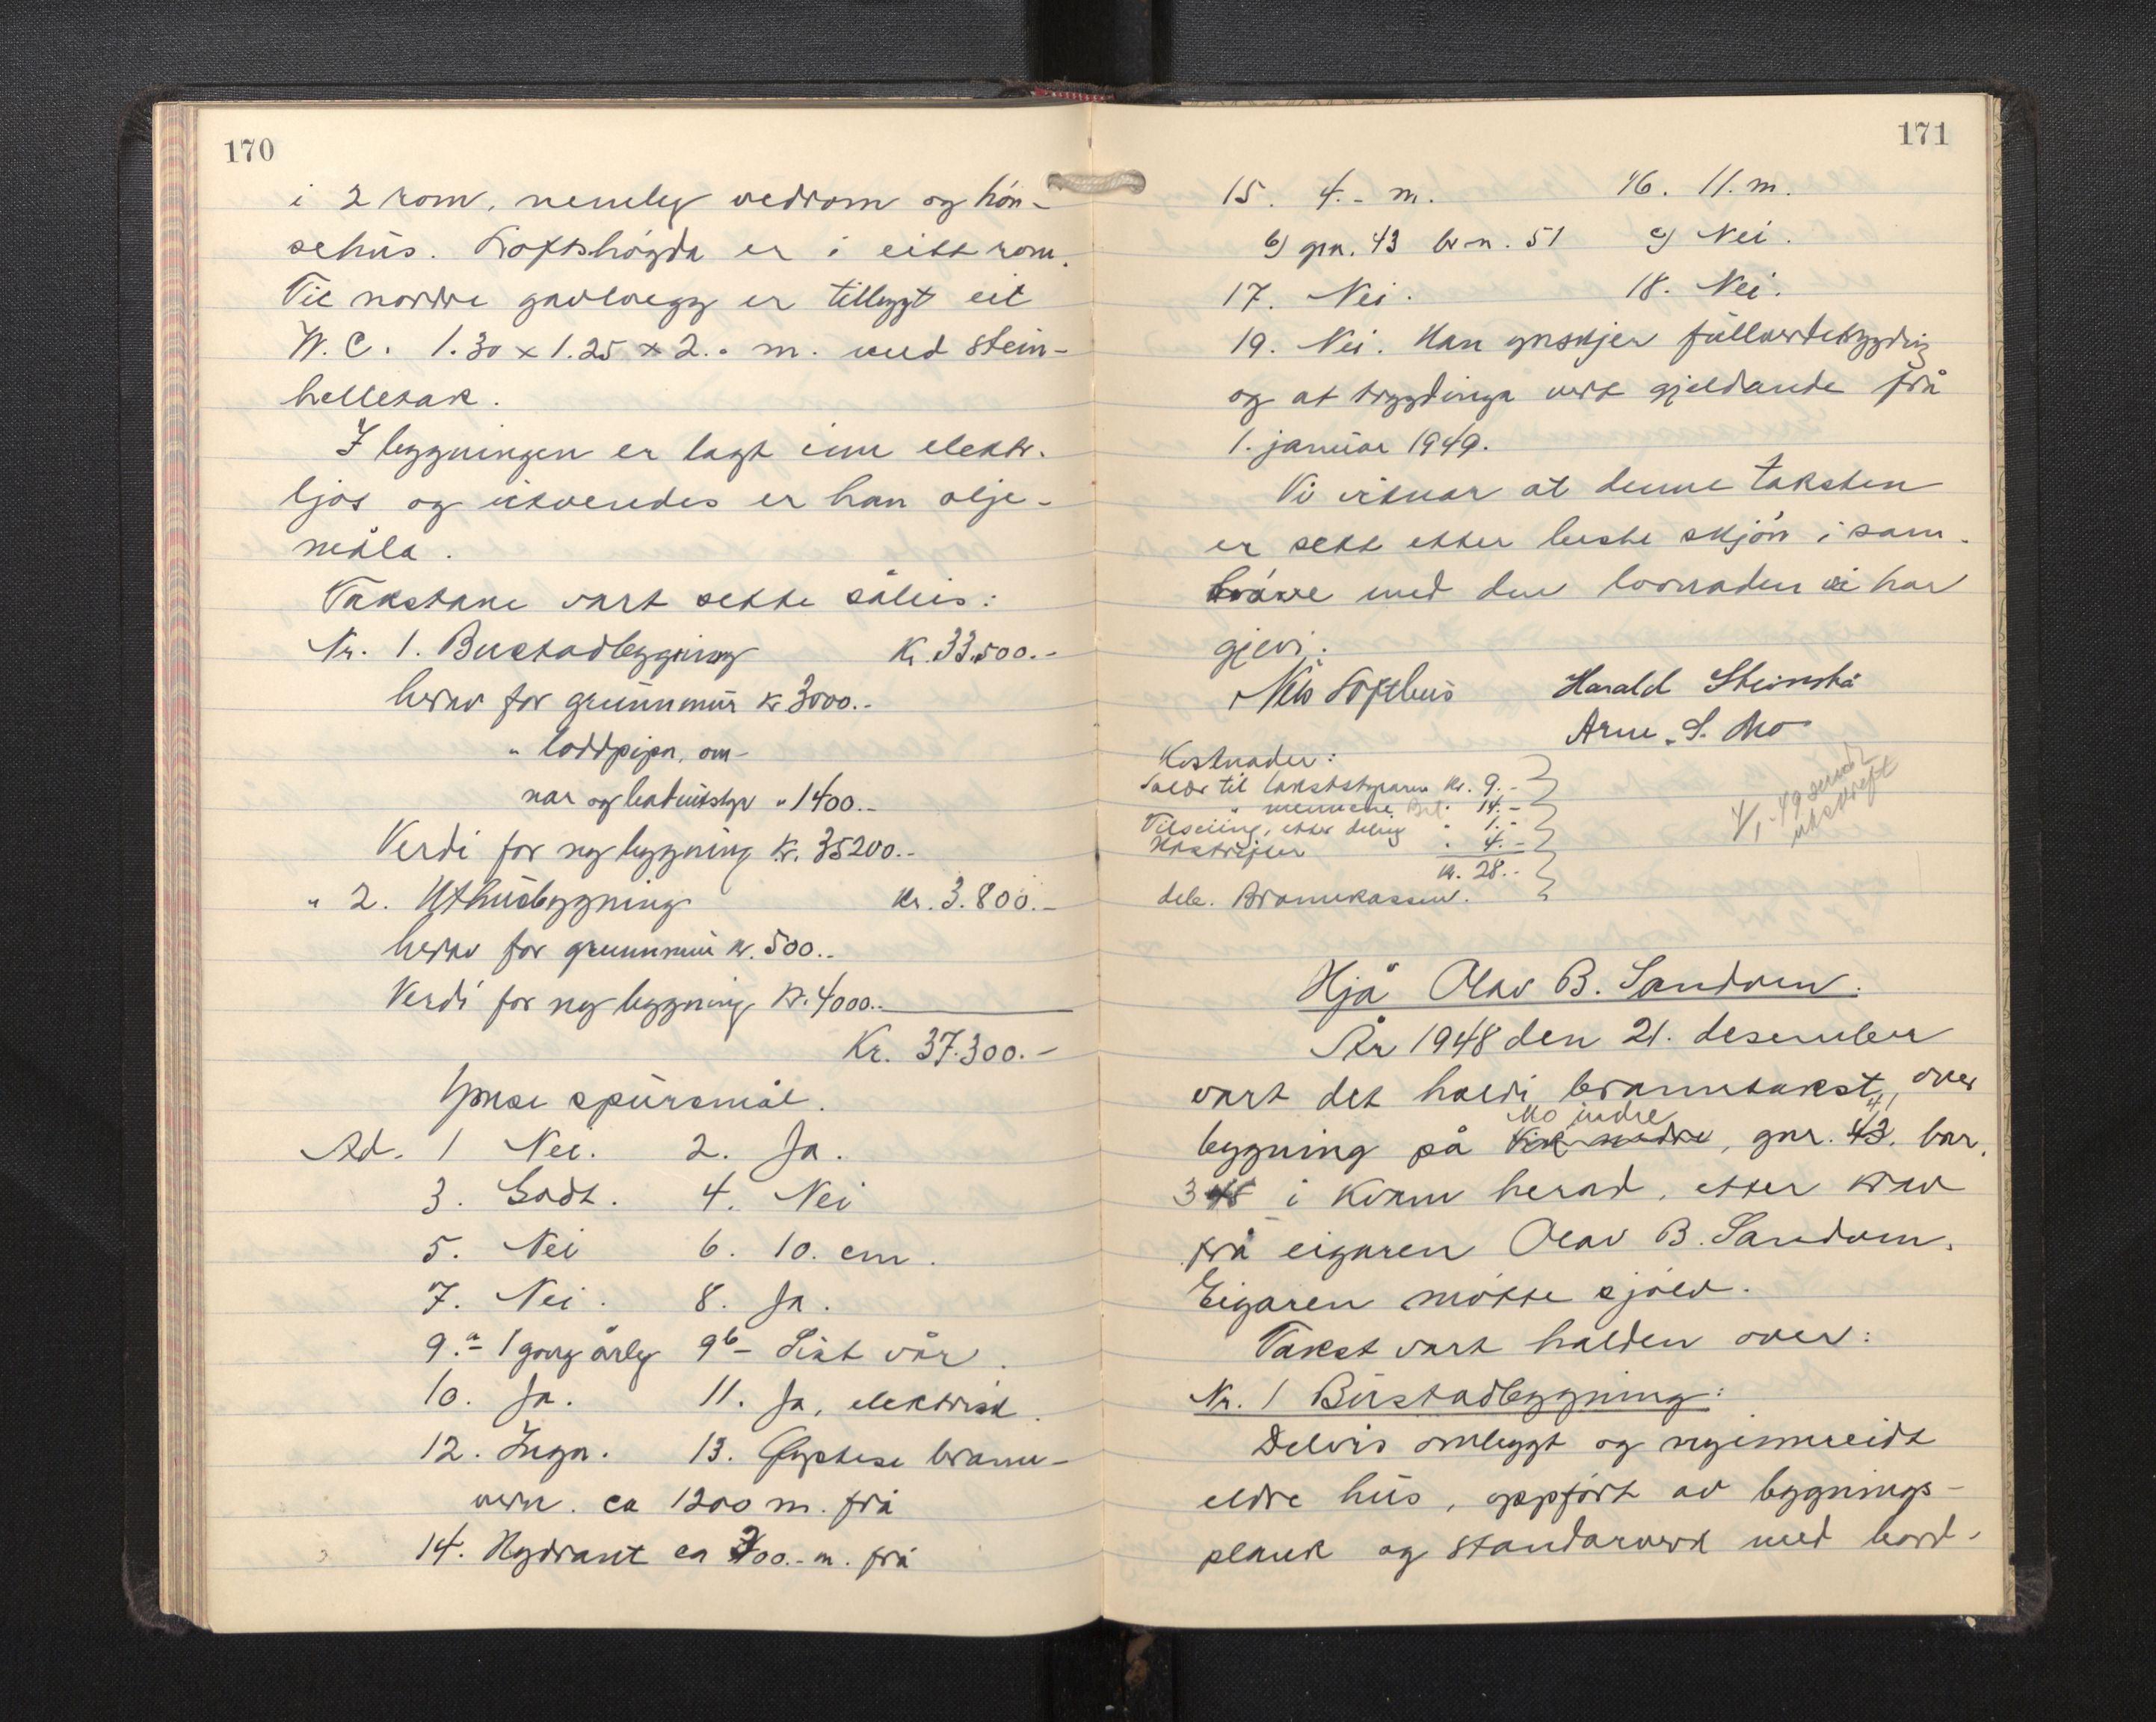 170
i 2 rom, nemleg vedrom og høn-
sehus. Loftshøgda er i eitt rom.
Til nordre gavlvegg er tilbygt eit
W.C. 1.30 x 1.25 x 2.0 m. med stein-
helletak.
I bygningen er lagt inn elektr.
ljos og utvendes er han olje-
måla.
Takstane vart sette såleis:
Nr. 1. Bustadbygning Kr. 33.500.-
herav for grunnmur kr 3000.-
" loddpipa, om-
nar og badutstyr " 1400.-
Verdi for ny bygning kr. 35200.-
" 2. Uthusbygning kr. 3.800.-
herav for grunnmur kr. 500.-
Verdi for ny bygning kr. 4000.-
Kr. 37.300.-
Ymse spursmål.
Ad. 1 Nei. 2. Ja.
3. Godt. 4. Nei
5. Nei 6. 10. cm.
7. Nei. 8. Ja.
9.a- 1 gong årleg 9b- Sist vår.
10. Ja. 11. Ja, elektrisk.
12. Ingen. 13. Øystese brann-
vern. ca 1200 m. frå
14. Hydrant ca 200.- m. frå
171
15. 4.- m. 16. 11. m.
b) gnr. 43 br.n. 51 c) Nei.
17. Nei. 18. Nei.
19. Nei. Han ynskjer fullverdetrygding
og at trygdinga vert gjeldande frå
1. januar 1949.
Vi vitnar at denne taksten
er sett etter beste skjøn i sam-
høve med den lovnaden vi har
gjevi.
Nils Softhus Harald Steinstø
Arne S. Mo
Kostnader:
Salær til takststyraren kr. 9.-
" mennene " 14.-
Tilseiing, etter deling " 1.-
Utskrifter " 4.-
kr. 28.-
dek. Brannkassen.
4/1-49 sendt
utskrift
Hjå Olav B. Sandven.
År 1948 den 21. desember
vart det haldi branntakst over
bygning på Vik nedre, Mo indre, gnr. 43. 41 bnr.
348 i Kvam herad, etter krav
frå eigaren Olav B. Sandven.
Eigaren møtte sjølv.
Takst vart halden over:
Nr. 1 Bustadbygning:
Delvis ombygt og nyinnreidt
eldre hus, oppført av bygnings-
plank og standarverk med bord-